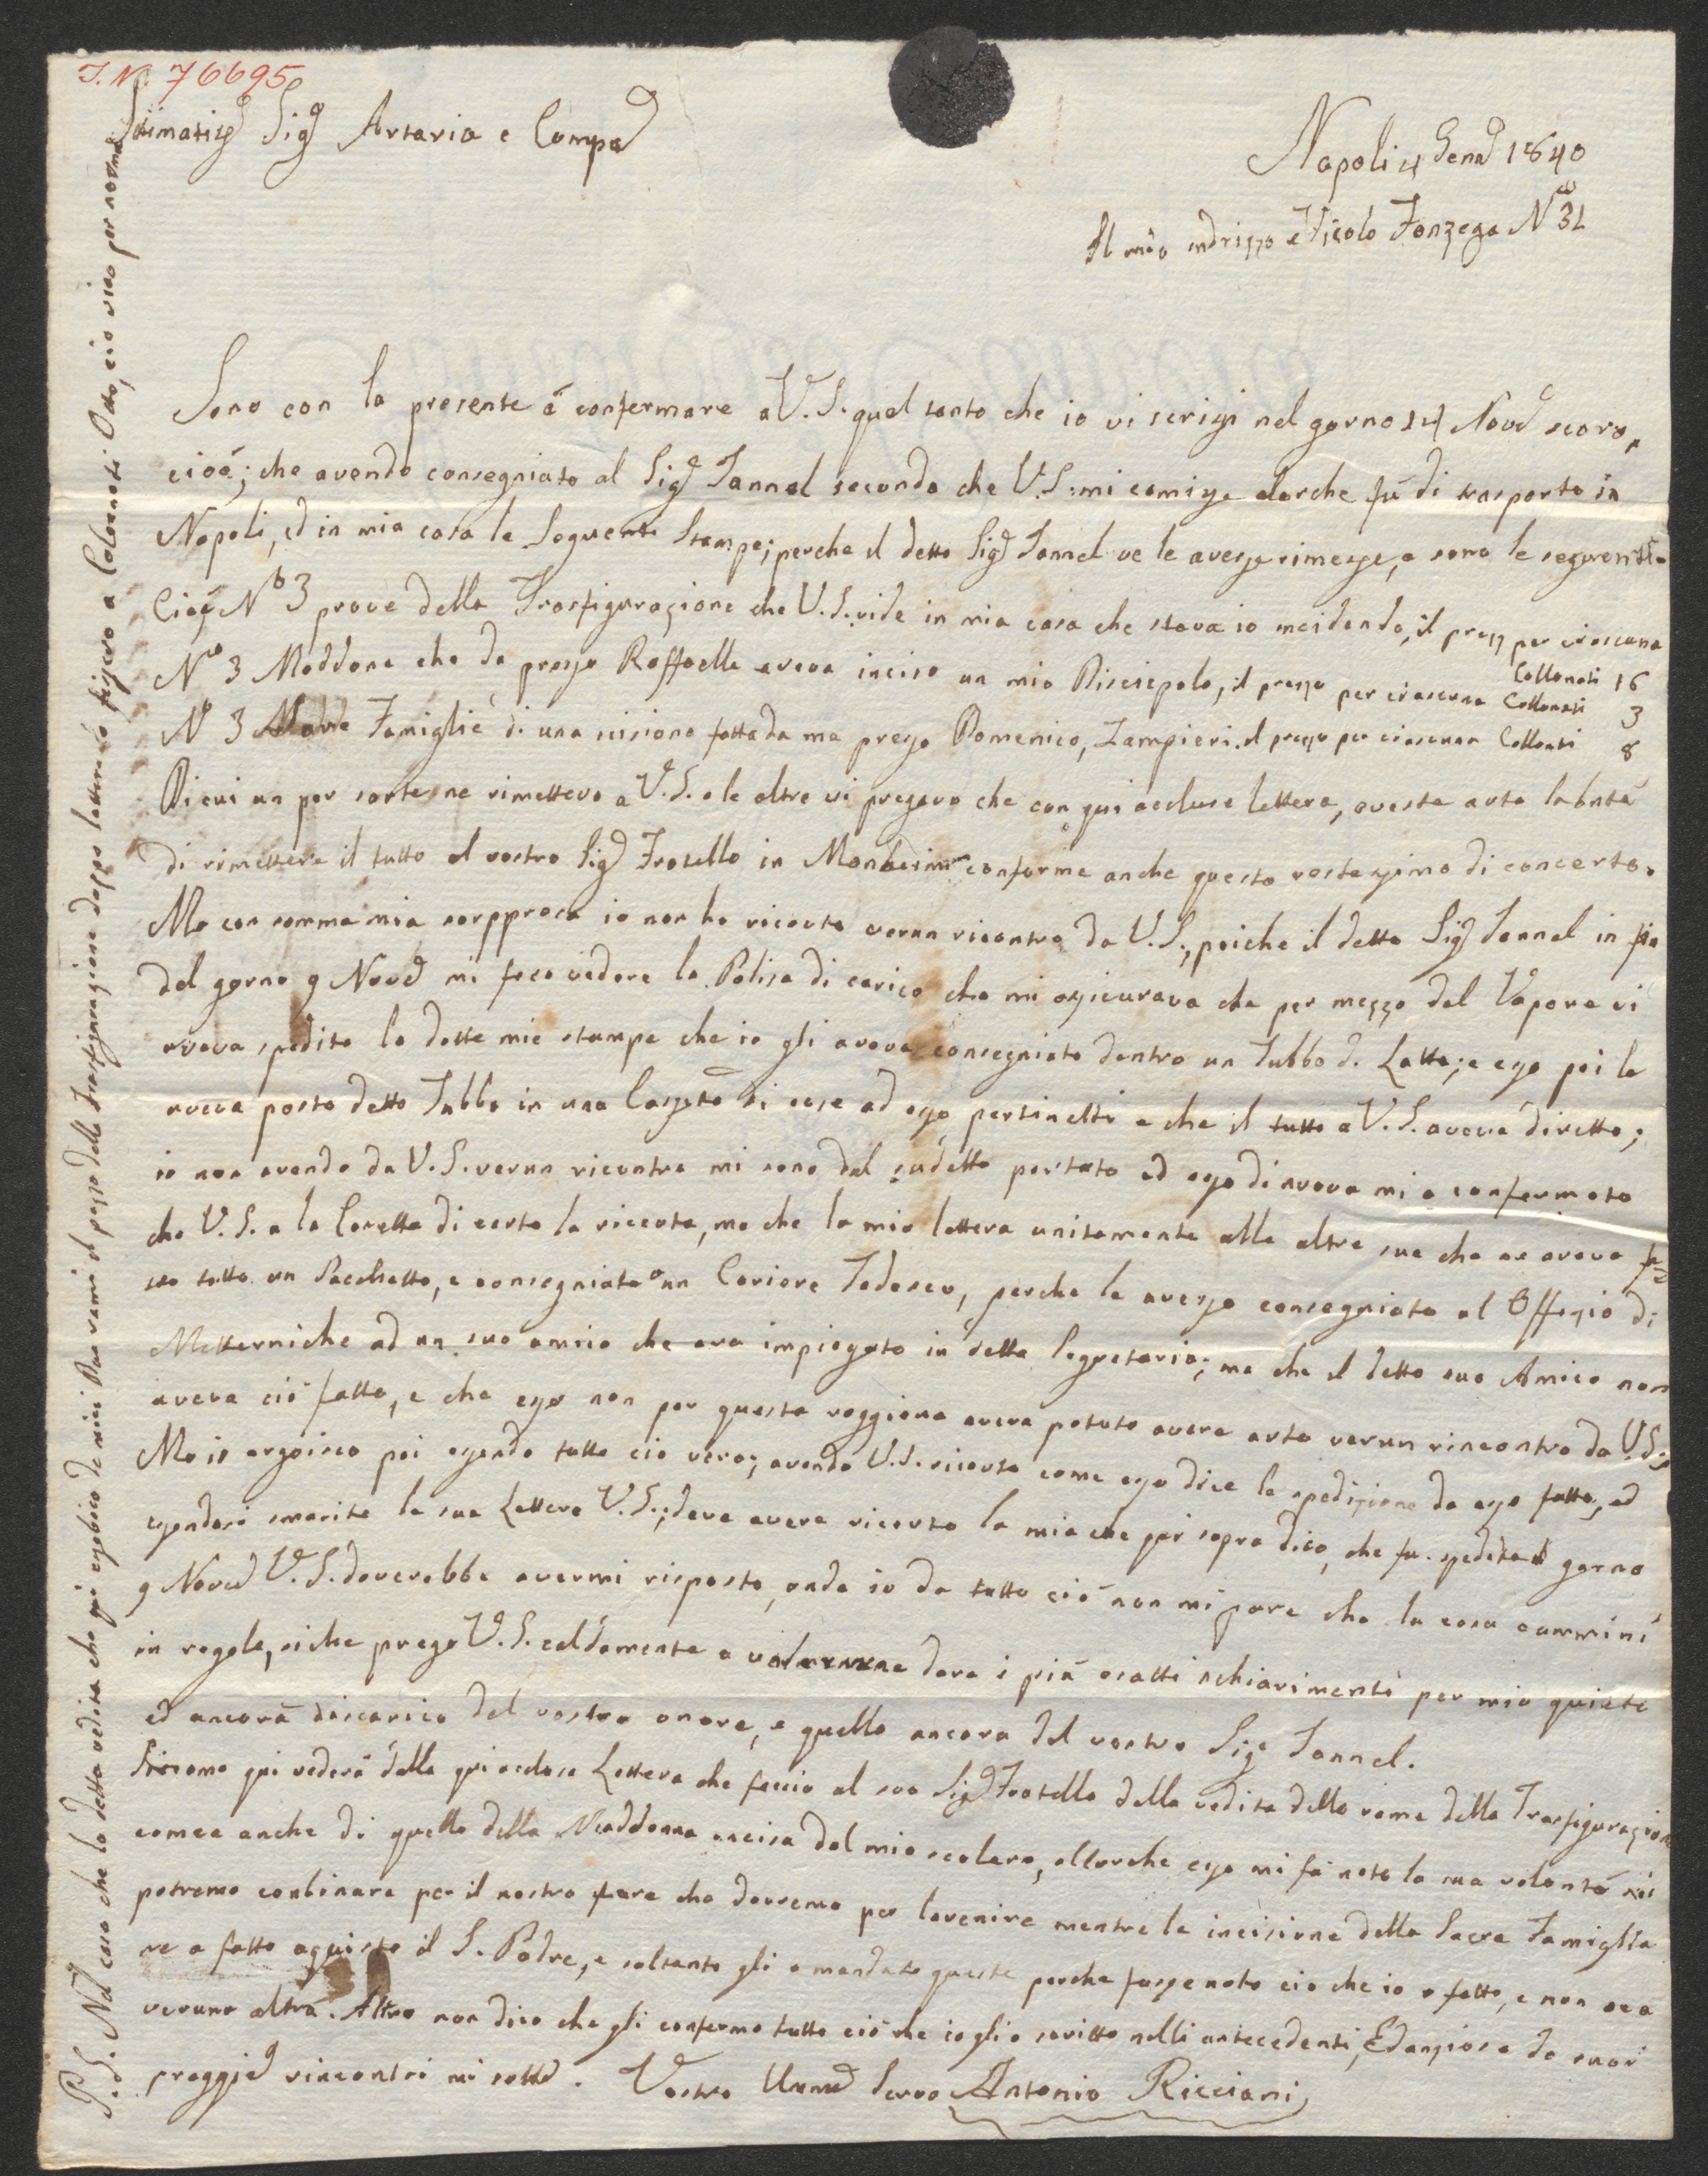 I. N. 76695
Stimatissi Sigi Artaria e Compa
Napoli 4 Gena 1840
Il mio indrizzo è Vicolo Fonzega No 31
Sono con la presente á confermare a V. S. quel tanto che io vi scrissi nel gorno 14 Nove scoro,
cioé; che avendo consegniato al Sige Jannel secondo che V. S. mi comisse alorche fú di trasporto in
Napoli, ed in mia casa le seguenti Stampe; perche il detto Sige Jannel ve le avesse rimesse, e sono le seguenti
Cioé No 3 prove della Trasfigurazione che V. S. vide in mia casa che stava io incidendo, il prezz per ciascuna
Collonati 16
No 3 Maddone che da presso Raffaelle aveva inciso un mio Discicepolo, il prezzo per ciascuna Collonati 3
No 3 Famiglie di una incisione fatta da me presso Domenico, Zampieri. il prezzo per ciascuna Collonati 8
Di cui un per sorte ne rimettevo a V. S. e le altre vi pregavo che con qui accluse lettera, aveste auto la bntá
di rimettere il tutto al vostro Sige Fratello in Manheim conforme anche questo restassimo di concerto.
Ma con somma mia sorppresa io non ho riceuto verun riscontro da V. S.; poiche il detto Sige Jannel in fin
dal gorno 9 Nove mi fece vedere la Polisa di carico che mi assicurava che per mezzo del Vapore vi
aveva spedito le dette mie stampe che io gli aveva consegniato dentro un Tubbo di Latta; e esso poi le
aveva posto detto Tubbo in una Cassetta di cose ad esso pertinetti e che il tutto a V. S. aveva diretto;
io non avendo da V. S. verun ricontro mi sono dal sudetto portato ed esso di nuovo mi a confermato
che V. S. a la Casetta di certo la riceuta, ma che la mia lettera unitamente alle altre sue che ne aveva fa
tto tutto un Pacchetto, e consegniato a un Coriere Tedesco, perche le avesse consegniato al Offizio di
Metterniche ad un suo amico che era impiegato in detta Segretaria; ma che il detto suo Amico non
aveva ció fatto, e che esso non per questa raggione aveva potuto avere auto verun rincontro da V. S.;
Ma io argoisco poi essendo tutto cio vero; avendo V. S. riceuto come esso dice la spedizione da esso fatta, ed
essendosi smarite le sue Lettere V. S.; deve avere riceuto la mia che poi sopra dico, che fu spedita il gorno
9 Nove V. S. doverebbe avermi risposto, onde io da tutto ció non mi pare che la cosa cammini
in regola, siche prego V. S. caldamente a dare i piú esatti schiarimenti per mia quiete
ed ancora discarico del vostro onore, e quello ancora del vostro Sige Jannel.
Siccome qui vederá dalla qui acclusa Lettera che faccio al suo Sige Fratello della vedita dello rame della Trasfigurazione
comee anche di quello della Maddonna incisa dal mio scolaro, allorche esso mi fá noto la sua volontá noi
potremo conbinare per il nostro fare che dovremo per lavenire mentre la incisione della Sacra Famiglia
ne a fatto aquisto il S. Padre, e soltanto gli o mandato queste perche fusse noto cio che io o fatto, e non ve a
veruno altra. Altro non dico che gli confermo tutto ció che io gli o scritto nelli antecedenti, Ed anzioso da suoi
preggie rincontri mi sotto. Vostro Ummo Servo Antonio Ricciani
P. S. Nel caso che la detta vedita che qui esebisco de miei Due rami il prezzo della Trasfigurazione doppo lettera fissero a Colonnati Otto, cio vies per norma